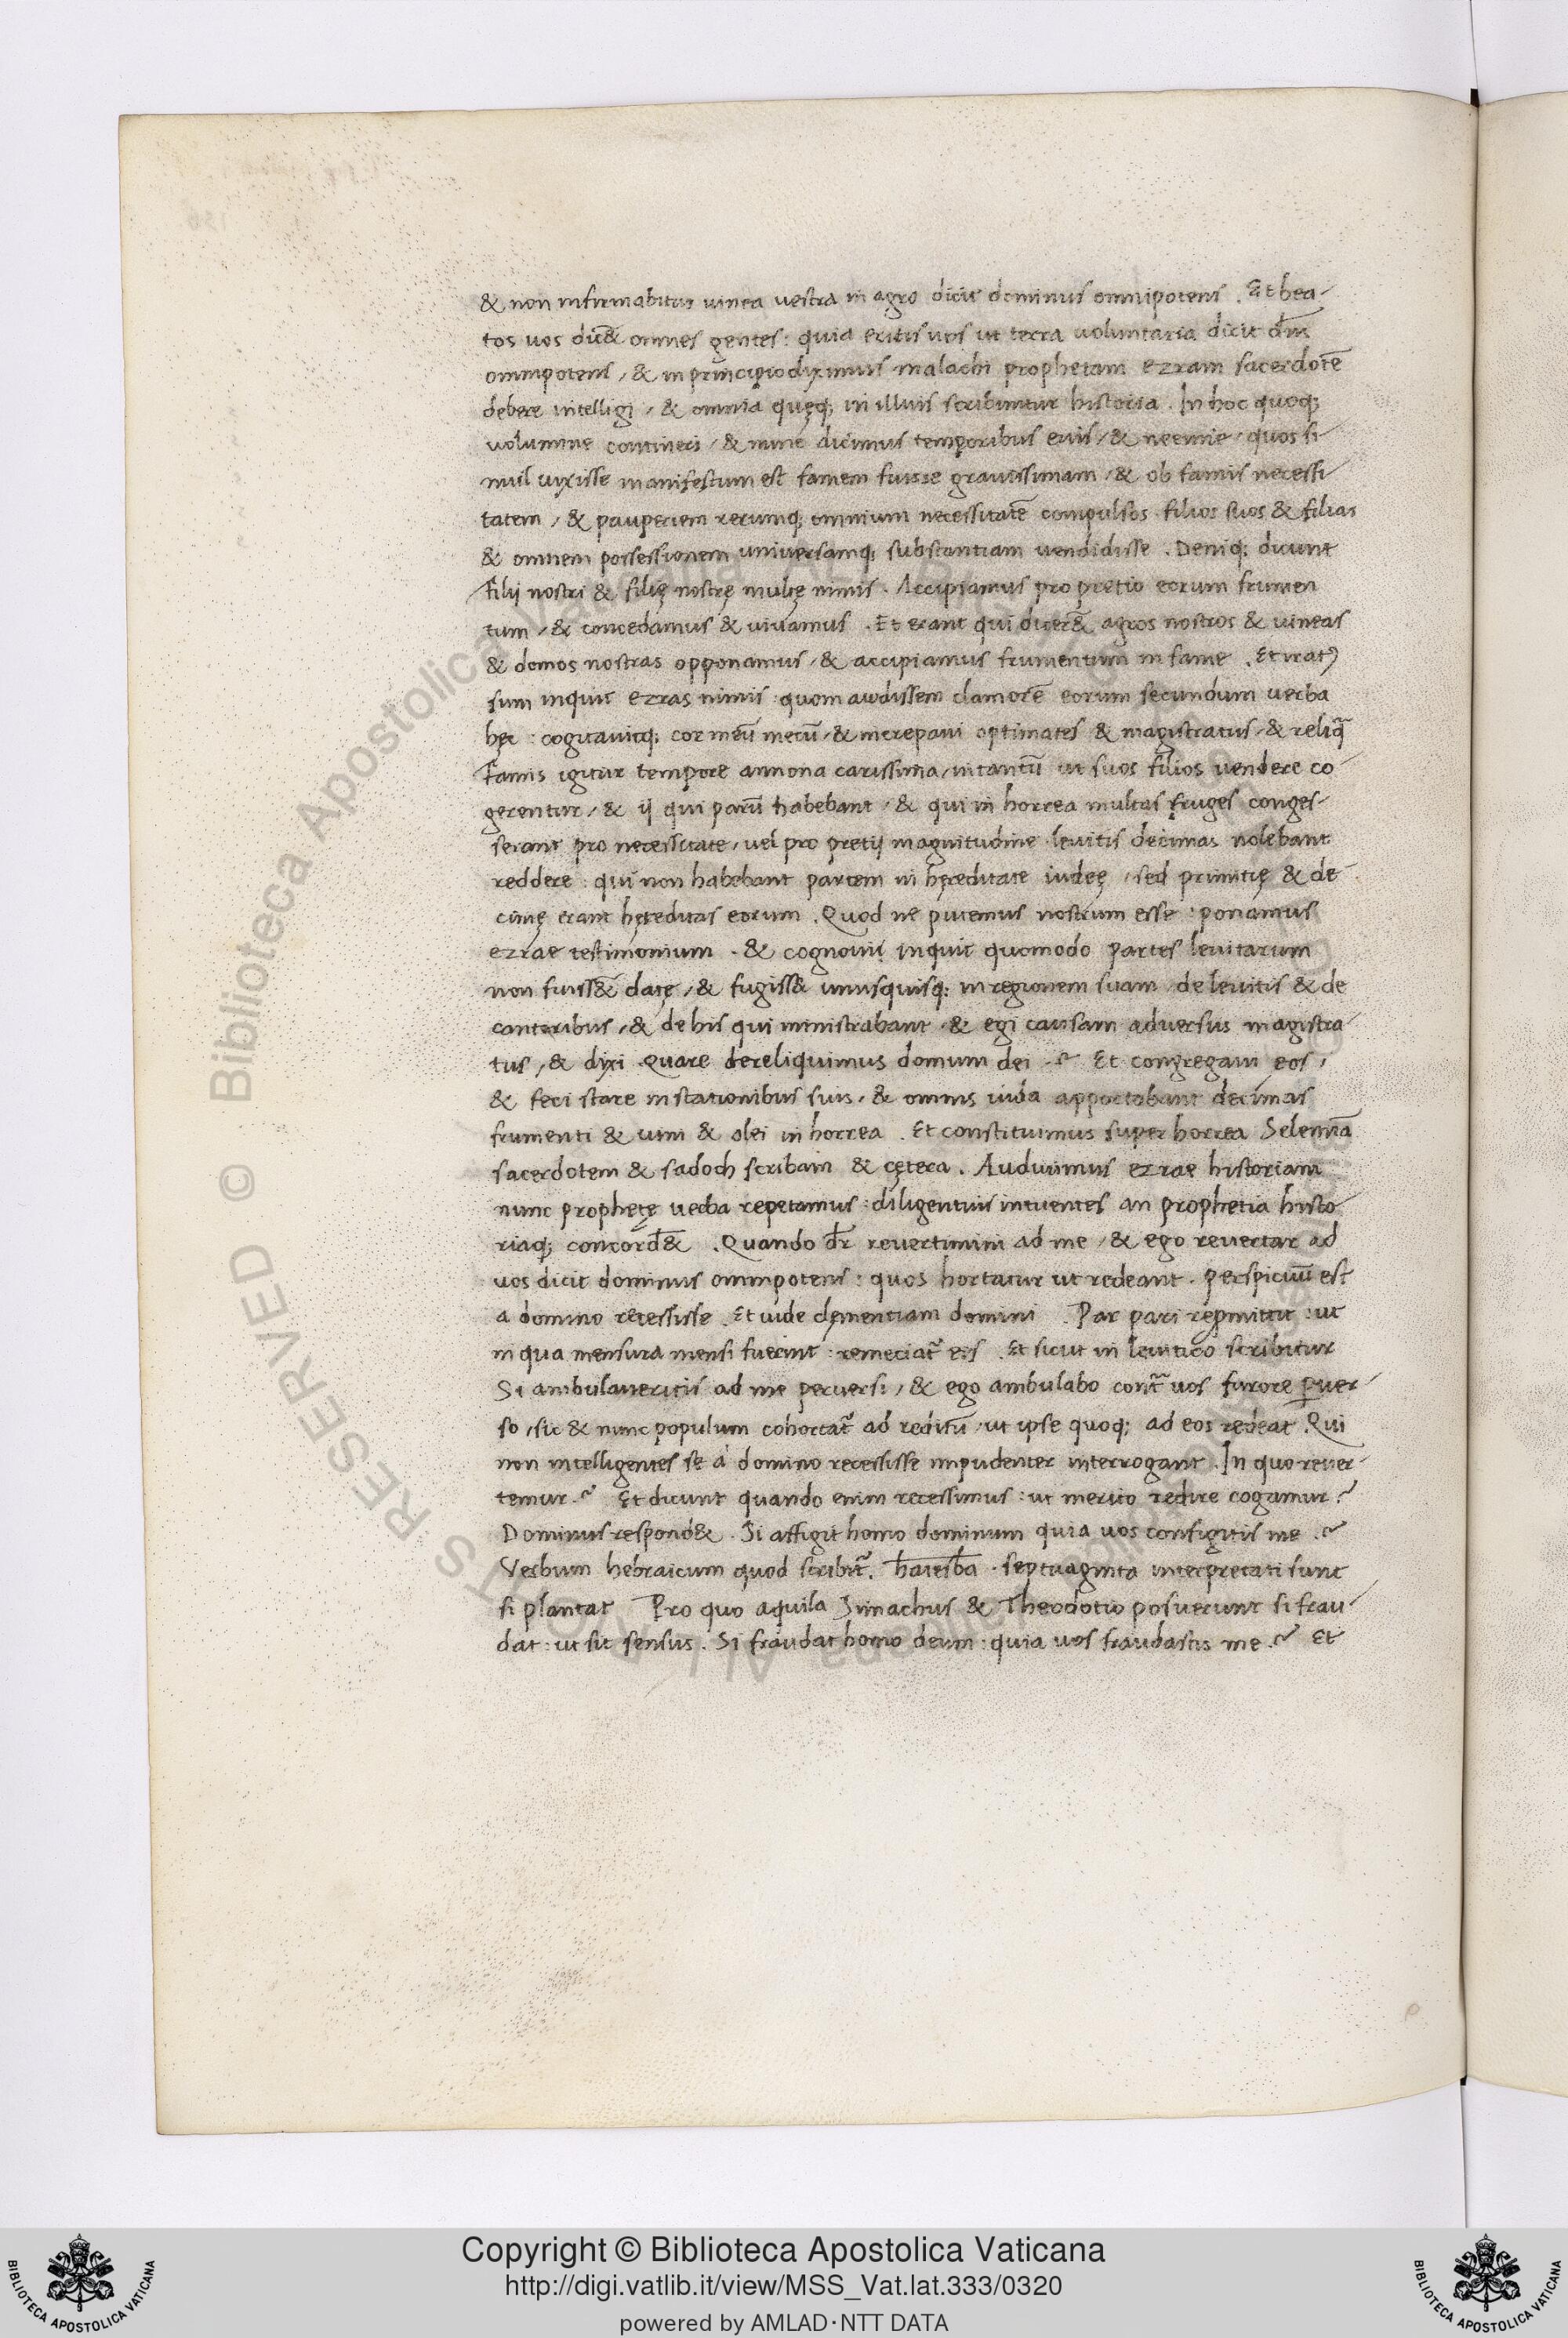 & non infirmabitur uinea uestra in agro dicit dominus omnipotens . Et bea-
tos uos dic& omnes gentes : quia eritis uos ut terra uoluntaria dicit dñs
omnipotens / & in principio diximus malachi prophetam ezram sacerdotē
debere intelligi / & omnia quęq; in illius scribuntur historia . In hoc quoq;
uolumine contineri / & nunc dicimus temporibus eius / & neemie / quos si-
mul uixisse manifestum est famem fuisse grauissimam / & ob famis necessi-
tatem / & pauperiem rerumq; omnium necessitatē compulsos filios suos & filias
& omnem possessionem universamq; substantiam uendidisse . Deniq; dicunt
Filij nostri & filię nostrę multę nimis . Accipiamus pro pretio eorum frumen
tum / & concedamus & uiuamus . Et erant qui dicer& agros nostros & uineas
& domos nostras opponamus / & accipiamus frumentum in fame . Et iratꝰ
sum inquit ezras nimis quom audissem clamorē eorum secundum uerba
hęc : cogitauitq; cor meū mecū / & increpaui optimates & magistratus / & reliq̃
Famis igitur tempore annona carissima / intantū ut suos filios uendere co-
gerentur / & ij qui parū habebant / & qui in horrea multas fruges conges-
serant pro necessitate / uel pro pretij magnitudine leuitis decimas nolebant
reddere : qui non habebant partem in hęreditate iudeę / sed primitię & de-
cimę erant hęreditas eorum . Quod ne putemus nostrum esse : ponamus
ezrae testimonium . & cognoui inquit quomodo partes leuitarum
non fuiss& datę / & fugiss& unusquisq; in regionem suam / de leuitis & de
cantoribus / & de his qui ministrabant / & egi causam adversus magistra-
tus / & dixi quare dereliquimus domum dei . ? Et congregaui eos /
& feci stare in stationibus suis / & omnis iuda apportabant decimas
frumenti & uini & olei in horrea . Et constituimus super horrea Selemiā
sacerdotem & sadoch scribam & cętera . Audiuimus ezrae historiam
nunc prophetę uerba repetamus : diligentius intuentes an prophetia histo-
riaq; concord& . Quando dr̄ revertimini ad me / & ego revertar ad
uos dicit dominus omnipotens : quos hortatur ut redeant . perspicuū est
a domino recessisse . Et uide clementiam domini . Par pari : ut
in qua mensura mensi fuerint : remeciat̃ eis . Et sicut in leuitico scribitur
Si ambulaueritis ad me perversi / & ego ambulabo cont̃ uos furore p̱uer-
so / sic & nunc populum cohortat̃ ad reditū / ut ipse quoq; ad eos redeat . Qui
non intelligentes se a domino recessisse impudenter interrogant . In quo rever-
temur . ? Et dicunt quando enim recessimus : ut merito redire cogamur . ?
Dominus respond& . Si affigit homo dominum quia uos configitis me . ?
Verbum hebraicum quod scribit̃ . septuaginta interpretati sunt
si plantat Pro quo aquila Simachus & Theodotio posuerunt si frau-
dat : ut sit sensus . Si fraudat homo deum : quia uos fraudastis me . ? Et
Copyright © Biblioteca Apostolica Vaticana
http://digi.vatlib.it/view/MSS_Vat.lat.333/0320
powered by AMLAD·NTT DATA